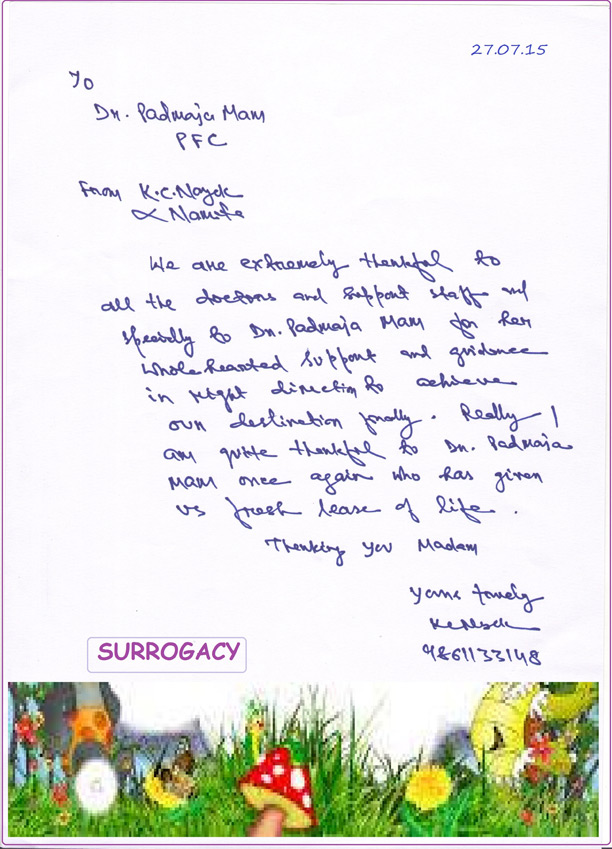 27.07.15
To
Dr. Padmaja Mam
PFC
From K.C. Nayak
& Namita
We are extremely thankful to
all the doctors and support staff and
specially to Dr. Padmaja Mam for her
whole hearted support and guidence
in right direction to achieve
our destination finally. Really I
am quite thankful to Dr. Padmaja
Mam once again who has given
us fresh lease of life.
Thanking you Madam
yours
9861133148
SURROGACY